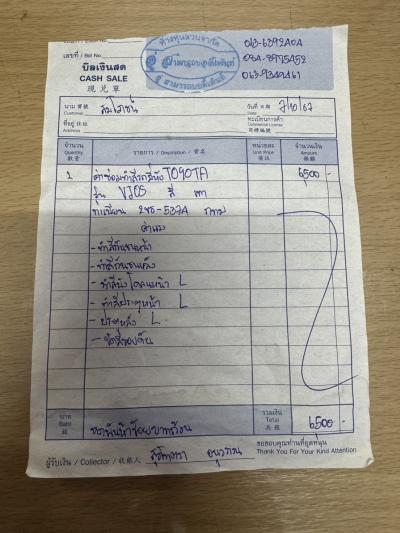 เลขที่ / Bill No.
บิลเงินสด
CASH SALE
現兌單
ห้างหุ้นส่วนจำกัด
นาม 寶號
Customer
วันที่ 日期
Date 7/10/67
ที่อยู่ 住址
Address
ทะเบียนการค้า
Commercial License
商標編號
จำนวน
Quantity
數量
รายการ / Description / 貨名
หน่วยละ
Unit Price
價銀
จำนวนเงิน
Amount
銀額
1 ค่าซ่อมทำสีรถยี่ห้อ TOYOTA 6500 -
รุ่น VIOS สี เทา
ทะเบียน 2ขธ-5374 กทม
ค่าแรง
- ทำสีกันชนหน้า
- ทำสีกันชนหลัง
- ทำสีบังโคลนหน้า L
- ทำสีประตูหน้า L
- ประตูหลัง L
บาท
Baht
銖
หกพันห้าร้อยบาทถ้วน
รวมเงิน
Total
共銀
6500 -
ขอขอบคุณท่านที่อุดหนุน
Thank You For Your Kind Attention
ผู้รับเงิน / Collector / 收銀人